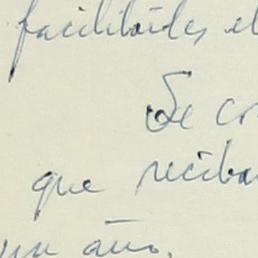 facilitarles el
Se co
que reciba
un año.